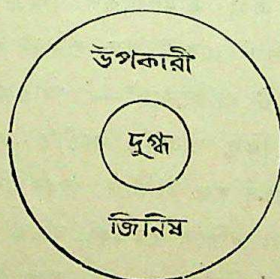 উপকারী
দুগ্ধ
জিনিষ